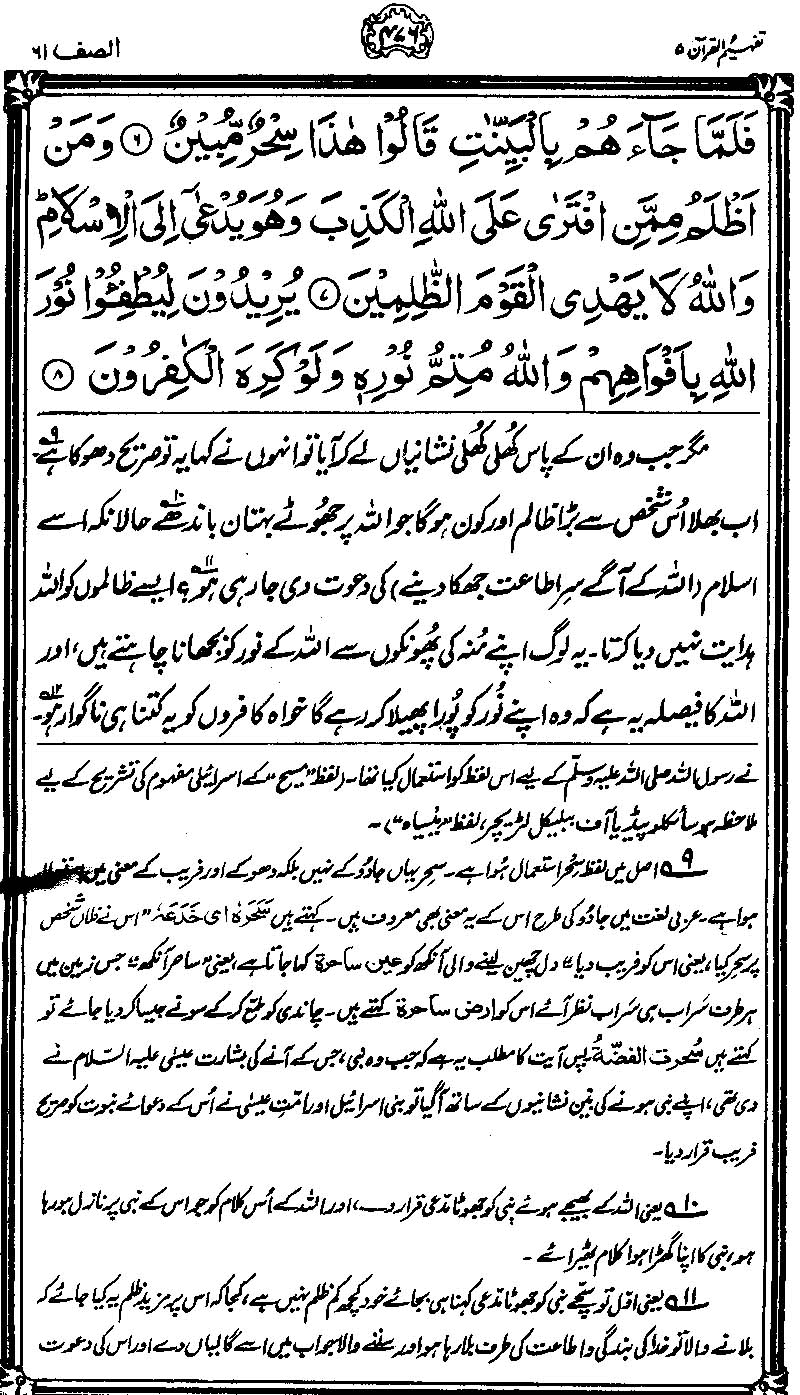 تفہیم القرآن ۵
۴۷۶
الصف ۶۱
فَلَمَّا جَآءَ هُمْ بِالْبَيِّنٰتِ قَالُوْا هٰذَا سِحْرٌ مُّبِيْنٌ ۶ وَمَنْ
اَظْلَمُ مِمَّنِ افْتَرٰى عَلَى اللّٰهِ الْكَذِبَ وَهُوَ يُدْعٰٓى اِلَى الْاِسْلَامِ ؕ
وَاللّٰهُ لَا يَهْدِى الْقَوْمَ الظّٰلِمِيْنَ ۷ يُرِيْدُوْنَ لِيُطْفِـُٔوْا نُوْرَ
اللّٰهِ بِاَفْوَاهِهِمْ وَاللّٰهُ مُتِمُّ نُوْرِهٖ وَلَوْ كَرِهَ الْكٰفِرُوْنَ ۸
مگر جب وہ ان کے پاس کُھلی کُھلی نشانیاں لے کر آیا تو انہوں نے کہا یہ تو صریح دھوکا ہے۹۔
اب بھلا اُس شخص سے بڑا ظالم اور کون ہوگا جو اللہ پر جھوٹے بہتان باندھے۱۰ حالانکہ اسے
اسلام (اللہ کے آگے سرِ اطاعت جھکا دینے) کی دعوت دی جا رہی ہو۱۱؟ ایسے ظالموں کو اللہ
ہدایت نہیں دیا کرتا۔ یہ لوگ اپنے مُنہ کی پھونکوں سے اللہ کے نور کو بجھانا چاہتے ہیں، اور
اللہ کا فیصلہ یہ ہے کہ وہ اپنے نُور کو پُورا پھیلا کر رہے گا خواہ کافروں کو یہ کتنا ہی ناگوار ہو۱۲۔
نے رسول اللہ صلی اللہ علیہ وسلّم کے لیے اس لفظ کو استعمال کیا تھا۔ (لفظ "مسیح" کے اسرائیلی مفہوم کی تشریح کے لیے
ملاحظہ ہو سائکلوپیڈیا آف ببلیکل لٹریچر، لفظ "میسیاہ")۔
۹ اصل میں لفظ سِحْر استعمال ہُوا ہے۔ سِحر یہاں جادُو کے نہیں بلکہ دھوکے اور فریب کے معنی میں استعمال
ہوا ہے۔ عربی لغت میں جادُو کی طرح اس کے یہ معنی بھی معروف ہیں۔ کہتے ہیں سَحَرَهٗ ای خَدَعَهٗ "اس نے فلاں شخص
پر سحر کیا، یعنی اس کو فریب دیا"۔ دل چھین لینے والی آنکھ کو عین ساحرة کہا جاتا ہے، یعنی "ساحر آنکھ" جس زمین میں
ہر طرف سَراب ہی سَراب نظر آئے اس کو ارض ساحرة کہتے ہیں۔ چاندی کو ملمّع کر کے سونے جیسا کر دیا جائے تو
کہتے ہیں سُحرت الفضّةُ۔ پس آیت کا مطلب یہ ہے کہ جب وہ نبی، جس کے آنے کی بشارت عیسیٰ علیہ السّلام نے
دی تھی، اپنے نبی ہونے کی بیّن نشانیوں کے ساتھ آگیا تو بنی اسرائیل اور امّتِ عیسیٰ نے اُس کے دعوائے نبوت کو صریح
فریب قرار دیا۔
۱۰ یعنی اللہ کے بھیجے ہوئے نبی کو جھوٹا مدّعی قرار دے، اور اللہ کے اُس کلام کو جو اس کے نبی پر نازل ہو رہا
ہو، نبی کا اپنا گھڑا ہوا کلام ٹھیرائے۔
۱۱ یعنی اوّل تو سچّے نبی کو جھوٹا مدّعی کہنا ہی بجائے خود کچھ کم ظلم نہیں ہے، کجا کہ اس پر مزید ظلم یہ کیا جائے کہ
بلانے والا تو خدا کی بندگی و اطاعت کی طرف بلا رہا ہو اور سننے والا جواب میں اسے گالیاں دے اور اس کی دعوت